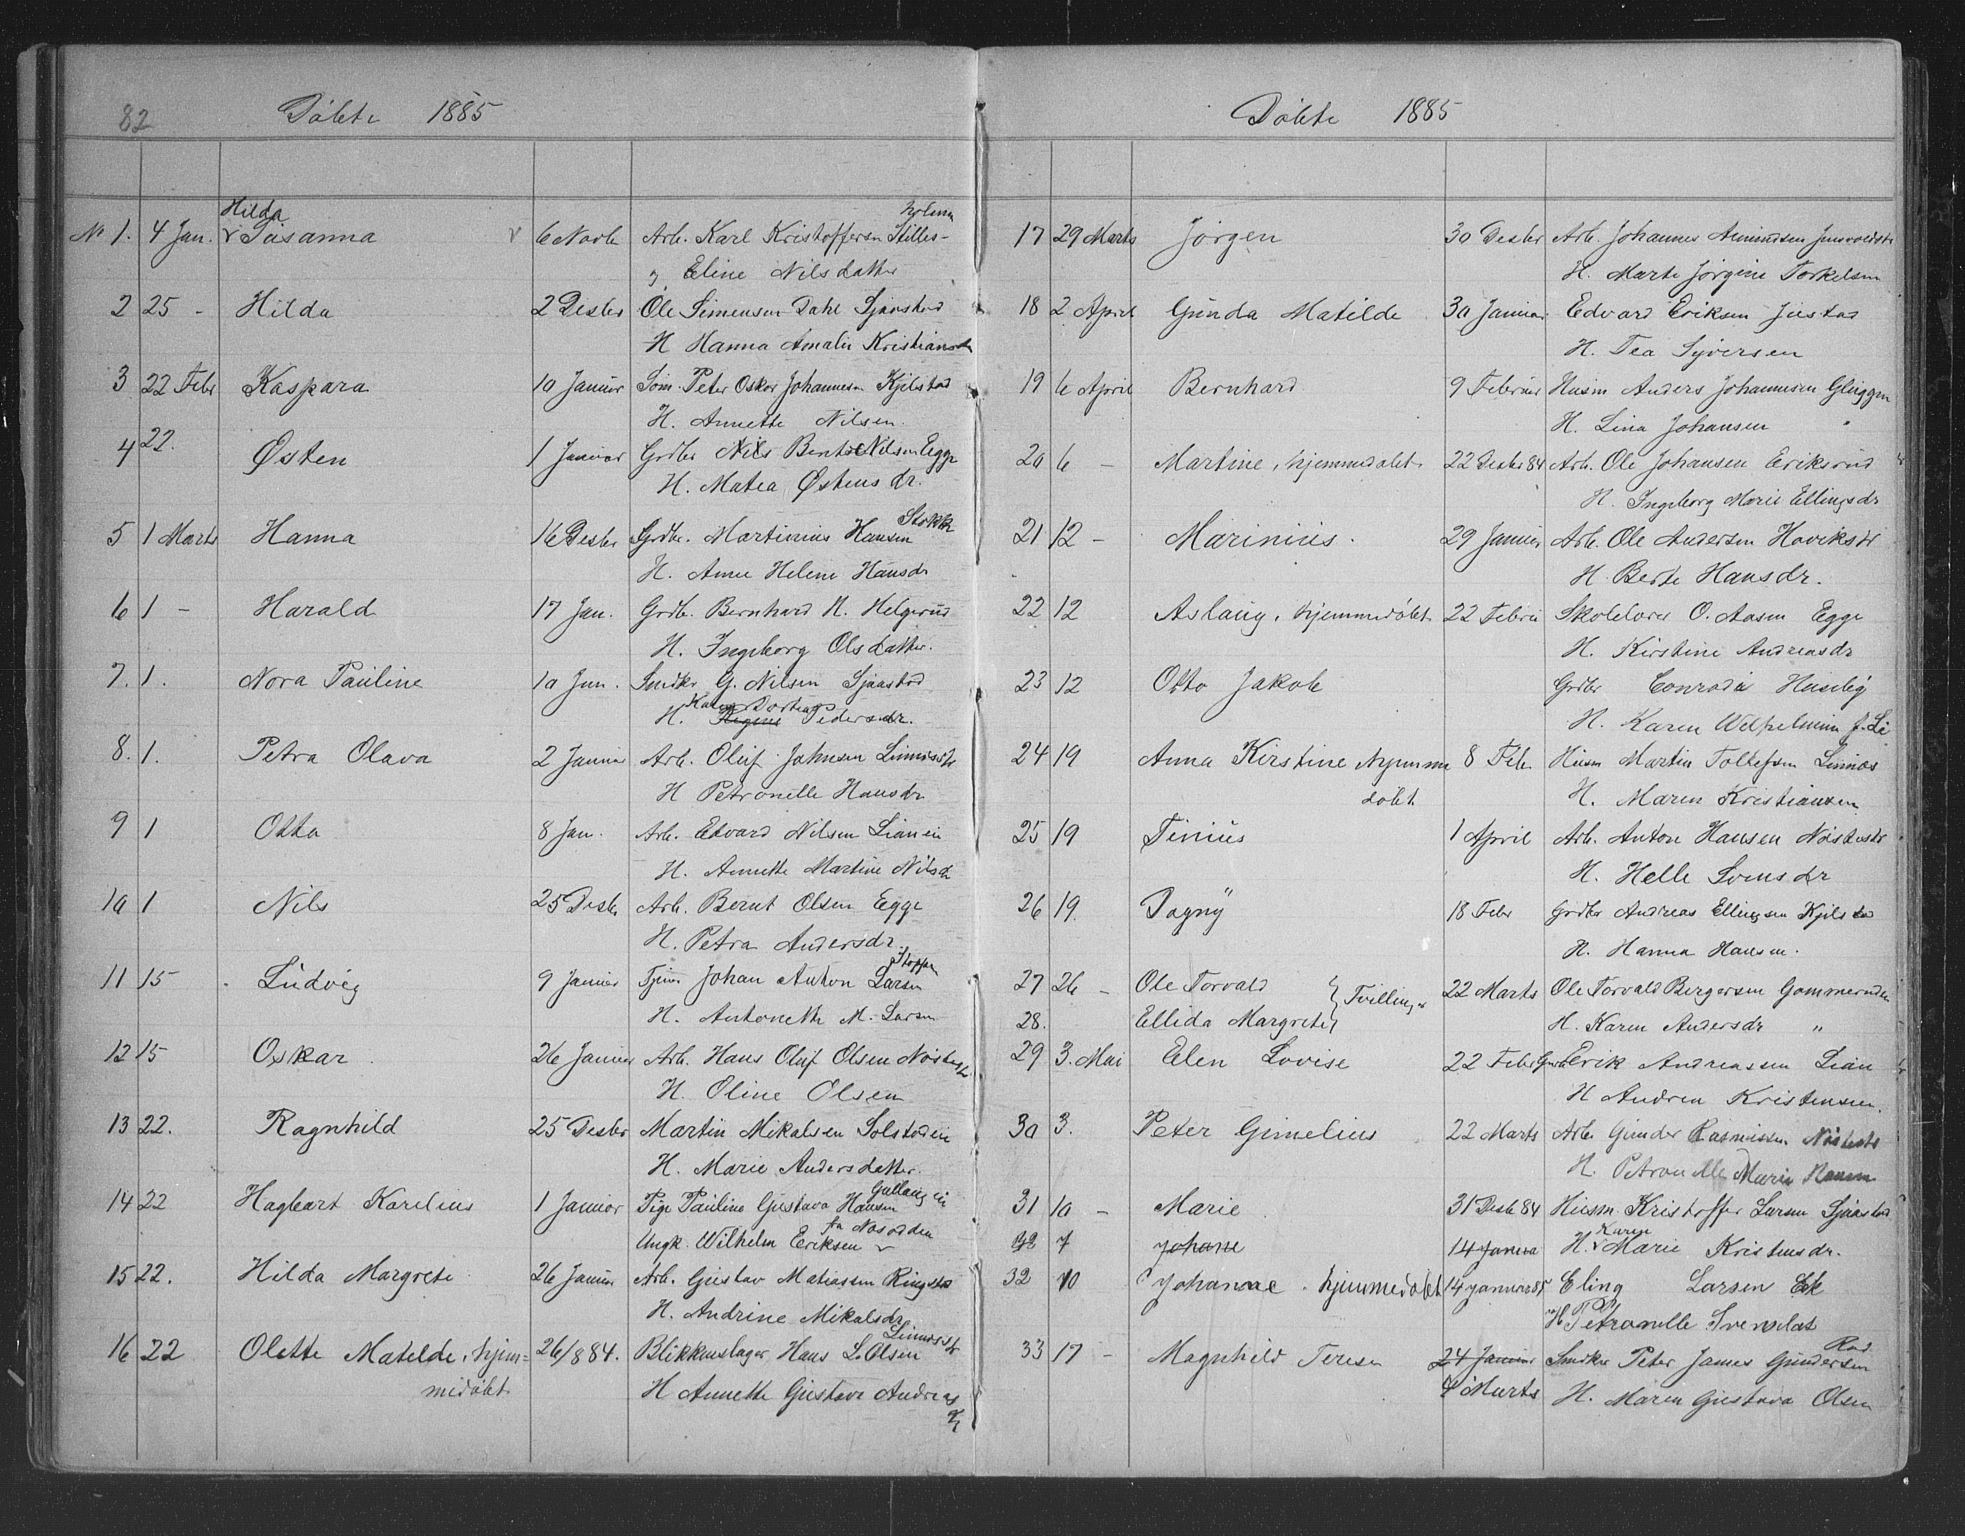 82 Döbte 1885
Hilda holmen
No 1. 4 Jan. Susanna 6 Novb Arb. Karl Kristoffersen Stilles-
Eline Nilsdatter
2 25 - Hilda 2 Desbr Ole Simensen Dahl Sjaastad
H Hanna Amalie Kristiansdr
3 22 Febr Kaspara 10 Januar Søm. Peter Oskar Johannesen Kjilstad
H. Annette Nilsen.
4 22. Østen 1 Januar Grdbr Nils Berntsen Nilsen Egge
H. Matea Østensdr.
5 1 Marts Hanna 16 Desbr Grdbr. Martinius Hansen Stokke
H. Anne Helene Hansdr
6 1 - Harald 17 Jan. Grdb. Bernhard N. Helgerud
H. Ingeborg Olsdatter.
7. 1. Nora Pauline 10 Jan. Smdkr G. Nilsen Sjaastad
Karen Dortea
H. Regine Pedersdr.
8. 1. Petra Olava 2 Januar Arb. Oluf Johnsen Linnesstr
H Petronelle Hansdr
9 1 Otto 8 Jan. Arb. Edvard Nilsen Lianein
H. Annette Martine Nilsdr
10 1 Nils 25 Desbr Arb. Bernt Olsen Egge
H. Petra Andersdr.
11 15 Ludvig 9 Januar Tjen. Johan Anton Larsen Stoppen
H. Antonette M. Larsen
12 15 Oskar 26 Januar Arb. Hans Oluf Olsen Nøste
H. Oline Olsen
13 22. Ragnhild 25 Desbr Martin Mikalsen Solstadein
H. Marie Andersdatter.
14 22 Hagbart Karelius 1 Januar Pige Pauline Gustava Hansen Gullaugein
Ungk. Wilhelm Eriksen fra Nosodden
15 22. Hilda Margrete 26 Januar Arb. Gustav Matiassen Ringstr
H. Andrine Mikalsdr.
16 22 Olette Matelde, hjem= 26/8 84. Blikkenslager Hans L. Olsen Linnesstr
medøbt H Annette Gustava Andreas
Döbte 1885
17 29 Marts Jørgen 30 Desbr Arb. Johannes Amundsen
H. Marte Jørgine Torkelsen
18 2 April Gunda Matilde 30 Januar Edvard Eriksen Justad
H. Tea Syversen
19 6 April Bernhard 9 Februar Husm Anders Johannesen Gluggen
H. Lina Johansen
20 6 - Martine, hjemmedøbt. 22 Desbr 84 Arb. Ole Johansen Eriksrud
H. Ingeborg Marie Ellingsdr
21 12 - Marinius. 29 Januar Arb. Ole Andersen Havikstr
H. Berte Hansdr.
22 12 Aslaug, hjemmedøbt 22 Februar Skolelærer O. Aasen Egge
H. Kirstine Andreasdr
23 12 Otto Jakob Grdbr Conradi Huseby
H. Karen Welhelmine f. Li
24 19 Anna Kirstine hjemme 8 Feb. Husm Martin Tollefsen Linnes
døbt H. Maren Kristiansen
25 19 Tinius 1 April Arb. Anton Hansen Nøstestr
H. Helle Svensdr
26 19. Dagny 18 Febr Grdbr Andreas Ellingsen Kjilstad
H. Hanna Hansen.
27 26 - Ole Torvald } Tvillinger 22 Marts Ole Torvald Bergersen Gommeruden
28. Ellida Margrete H. Karen Andersdr "
29 3. Mai Elen Lovise 22 Febr Grdb Erik Andreassen Lian
H Andrea Kristensen.
30 3. Peter Gimelius 22 Marts Arb. Gunder Rasmussen Nøstestr
H. Petronelle Marie Hansen
31 10 - Marie 31 Desb 84 Husm. Kristoffer Larsen Sjaastad
Karen
32 7 Johane 14 Janua H. Marie Kristensdr.
32 10 Johanne. hjemmedøbt 14 januar 85 Eling Larsen Ek
H Petronelle Svensdat
33 17 - Magnhild Terese 24 Januar Smdkr Peter James Gundersen Rød
4 Marts H. Maren Gustava Olsen